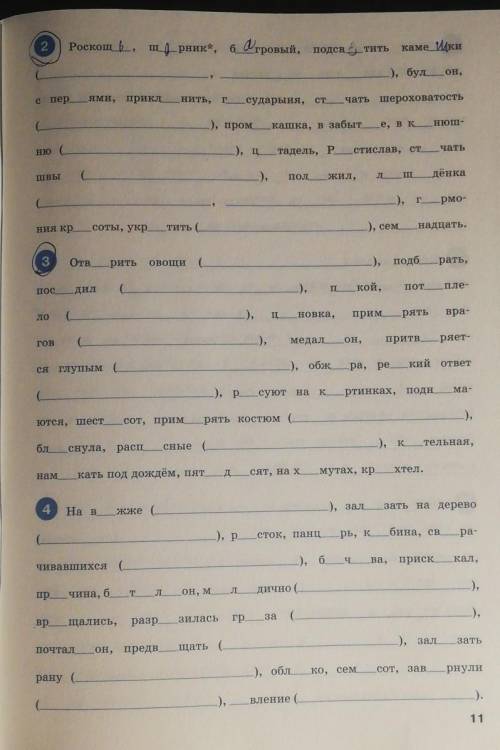 2 Роскош ь , ш о рник*, б а гровый, подсв е тить каме ш ки
(____, ____), бул__он,
с пер__ями, прикл__нить, г__сударыня, ст__чать шероховатость
(____), пром__кашка, в забыт__е, в к__нюш-
ню (____), ц__тадель, Р__стислав, ст__чать
швы (____), пол__жил, л__ш__дёнка
(____, ____), г__рмо-
ния кр__соты, укр__тить (____), сем__надцать.
3 Отв__рить овощи (____), подб__рать,
пос__дил (____), п__кой, пот__пле-
ло (____), ц__новка, прим__рять вра-
гов (____), медал__он, притв__ряет-
ся глупым (____), обж__ра, ре__кий ответ
(____), р__суют на к__ртинках, подн__ма-
ются, шест__сот, прим__рять костюм (____),
бл__снула, расп__сные (____), к__тельная,
нам__кать под дождём, пят__д__сят, на х__мутах, кр__хтел.
4 На в__жже (____), зал__зать на дерево
(____), р__сток, панц__рь, к__бина, св__ра-
чивавшихся (____), б__ч__ва, приск__кал,
пр__чина, б__т__л__он, м__л__дично (____),
вр__щались, разр__зилась гр__за (____),
почтал__он, предв__щать (____), зал__зать
рану (____), обл__ко, сем__сот, зав__рнули
(____), __вление (____).
11